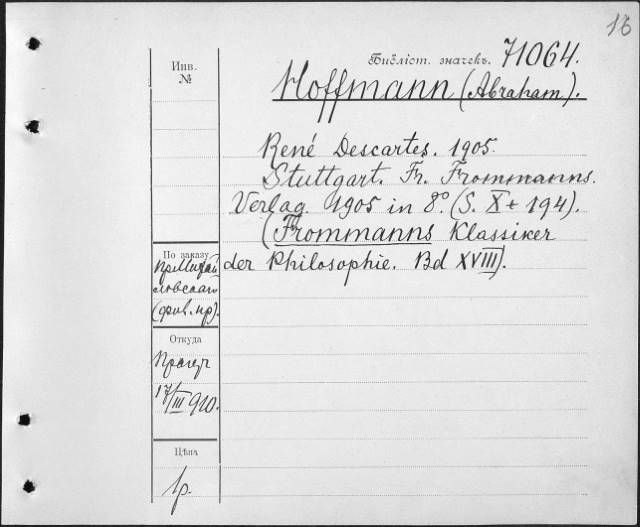 16
Библіот. значекъ. 71064.
Инв.
№
Hoffmann (Abraham).
René Descartes. 1905.
Stuttgart. Fr. Frommanns.
Verlag. 1905 in 8°. (S. X + 194).
(Frommanns Klassiker
der Philosophie. Bd XVIII).
По заказу
ловскаго
Откуда
17/III 910.
Цѣна
1р.